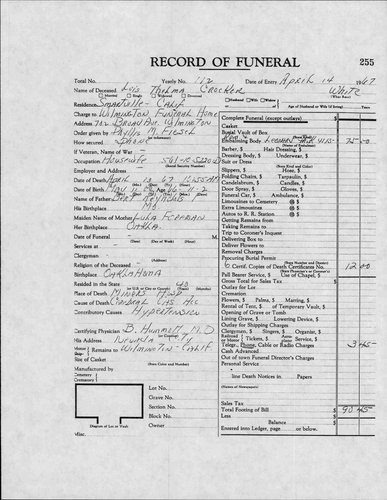 RECORD OF FUNERAL 255
Total No. Yearly No. 12 Date of Entry April 14 1967
Name of Deceased Lois Thelma Crocker White
Married Single Widowed Divorced Husband Wife Widow (What Race)
Residence Smartville - Calif or Age of Husband or Wife (if living) Years
Charge to Wilmington Funeral Home
Address 702 Broad Ave. Wilmington
Order given by Phyllis M.
How secured Phone
If Veteran, Name of War -
Occupation Housewife
(Social Security Number)
Employer and Address
Date of Death April 13 67 12:55 AM
Date of Birth May 11
Name of Father Bert Reynolds
His Birthplace Mo
Maiden Name of Mother Lula Freeman
Her Birthplace Okla.
Date of Funeral M.
(Date) (Day of Week) (Hour)
Services at -
Clergyman -
Religion of the Deceased -
Birthplace Oklahoma
Resided in the State 40
(or U.S. or City or County) (Years) (Months)
Place of Death Miners Hosp
Cause of Death Cerebral
Contributory Causes Hypertension
Certifying Physician B. Hummelt M.D
His Address Nevada City
Remains to Wilmington - Calif
Size of Casket
(State Color and Number)
Manufactured by
Cemetery
Crematory
Lot No.
Grave No.
Section No.
Block No.
Diagram of Lot or Vault Owner
Misc.
Complete Funeral (except outlays) $
Casket
Burial Vault of Box
(State Kind)
Embalming Body 75 00
Barber, $ Hair Dressing, $
Dressing Body, $ Underwear, $
Suit or Dress
(State Kind and Color)
Slippers, $ Hose, $
Folding Chairs, $ Tarpaulin, $
Candelabrum, $ Candles, $
Door Spray, $ Gloves, $
Funeral Car, $ Ambulance, $
Limousines to Cemetery @ $
Extra Limousines @ $
Autos to R. R. Station @ $
Getting Remains from
Taking Remains to
Trip to Coroner's Inquest
Delivering Box to
Deliver Flowers to
Removal Charges
Procuring Burial Permit
(State Number and District)
6 Certif. Copies of Death Certificates No. 12 00
(State Province's or Coroner's)
Pall Bearer Service, $ Use of Chapel, $
Gross Total for Sales Tax $
Outlay for Lot
Flowers, $ Palms, $ Matting, $
Rental of Tent, $ of Temporary Vault, $
Opening of Grave or Tomb
Lining Grave, $ Lowering Device, $
Outlay for Shipping Charges
Clergyman, $ Singers, $ Organist, $
Railroad or Motor Tickets, $ Aeroplane Service, $
Telegr., Phone, Cable or Radio Charges 3 45
Cash Advanced
Out of town Funeral Director's Charges
Personal Service
line Death Notices in Papers
(Names of Newspapers)
Sales Tax
Total Footing of Bill $ 90 45
Less
Balance $
Entered into Ledger, page or below.